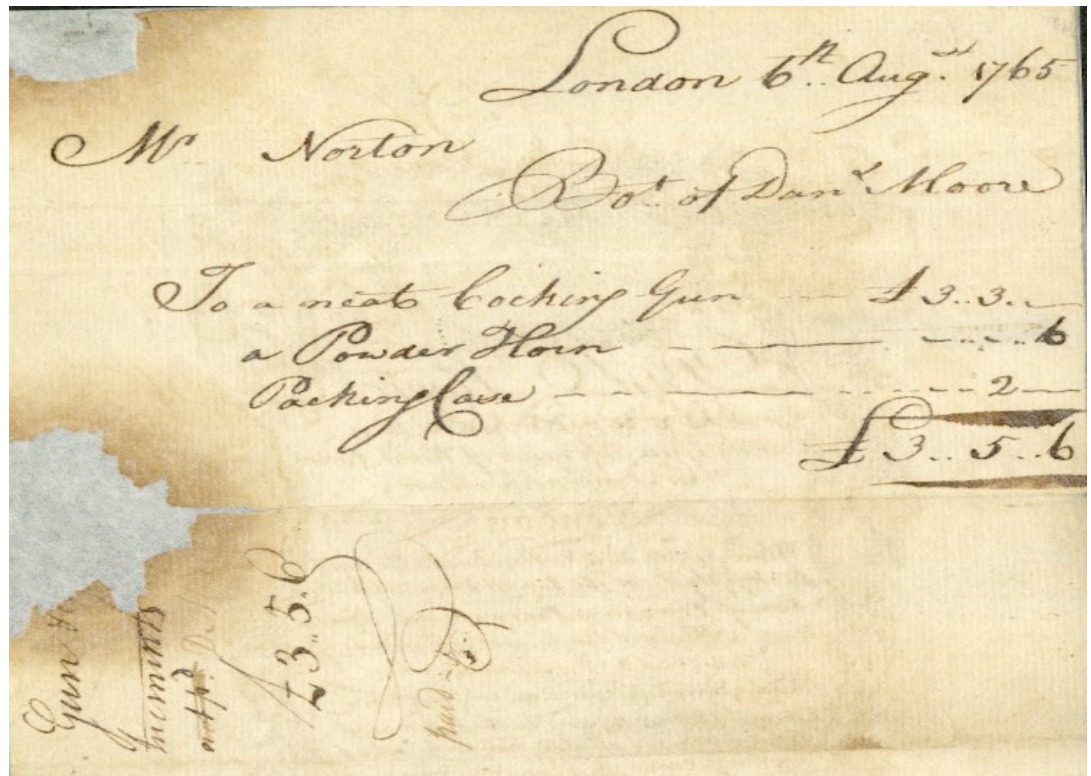 London 6th.. Augst. 1765
Mr Norton
Bot. of Danl. Moore
To a neat Cocking Gun — £ 3..3..—
a Powder Horn — — — ..6
Packing Case — — — 2 —
£ 3..5..6
Gun
£3..5.6
paid